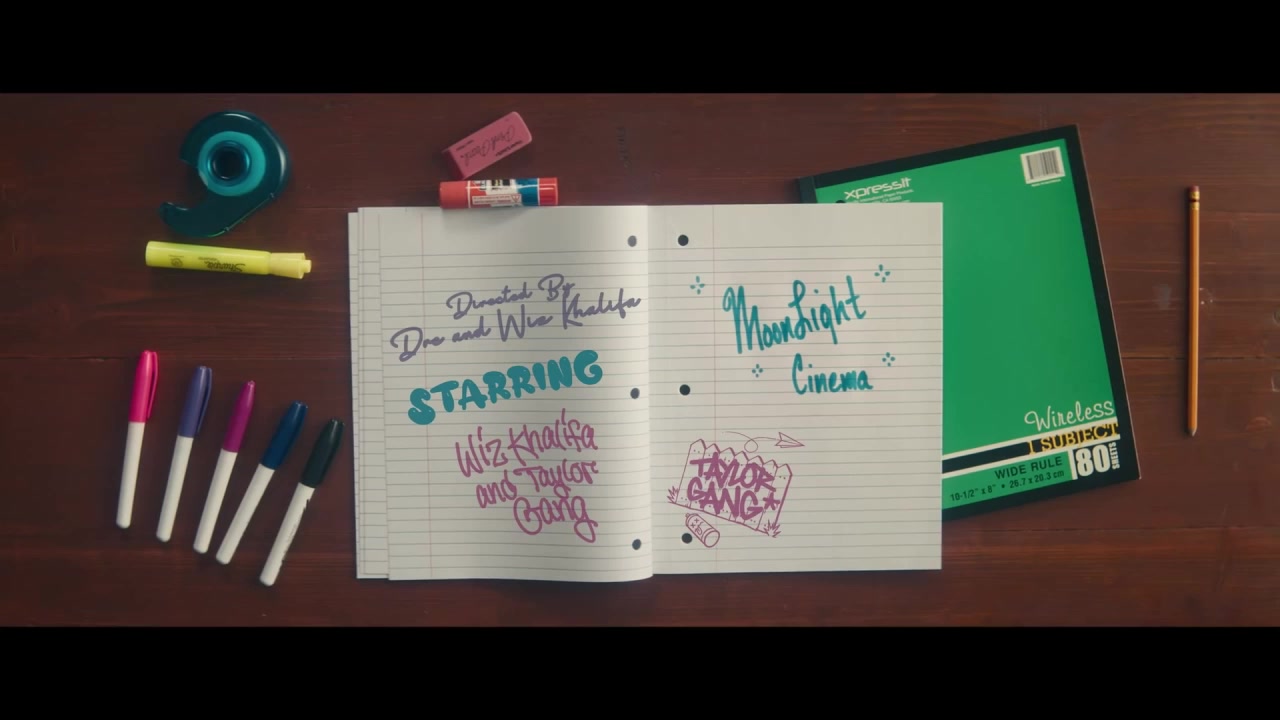 Directed By
Dre and Wiz Khalifa
STARRING
Wiz Khalifa
and Taylor
Gang
MoonLight
Cinema
TAYLOR
GANG
Pink Pearl
Sharpie
xpressit
Wireless
1 SUBJECT
WIDE RULE
80 SHEETS
10-1/2" x 8" • 26.7 x 20.3 cm